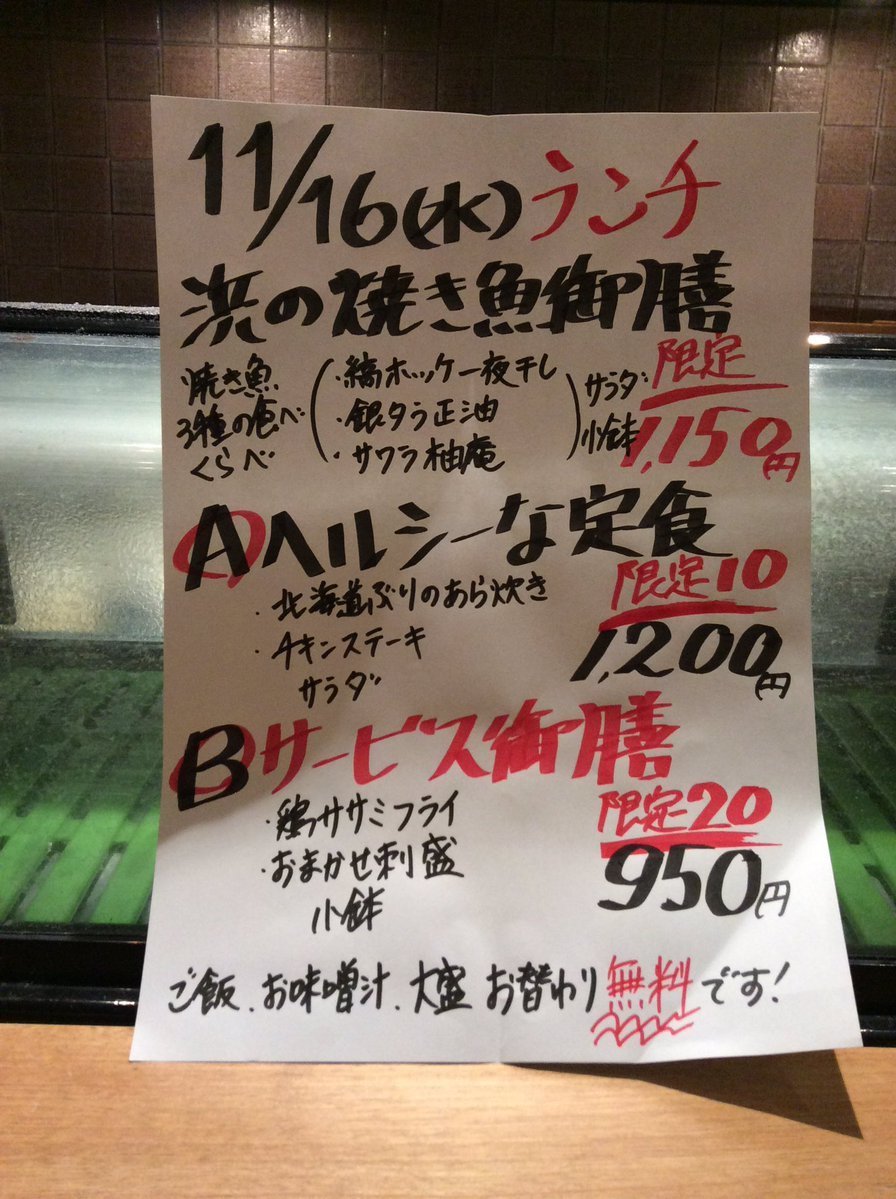 11/16(水)ランチ
浜の焼き魚御膳
焼き魚
3種の食べ
くらべ
・縞ホッケ一夜干し
・銀タラ正油
・サワラ柚庵
サラダ
小鉢
限定
1,150円
Aヘルシーな定食
・北海道ぶりのあら炊き
・チキンステーキ
サラダ
限定10
1,200円
Bサービス御膳
・鶏ササミフライ
・おまかせ刺盛
小鉢
限定20
950円
ご飯、お味噌汁、大盛 お替わり無料です!